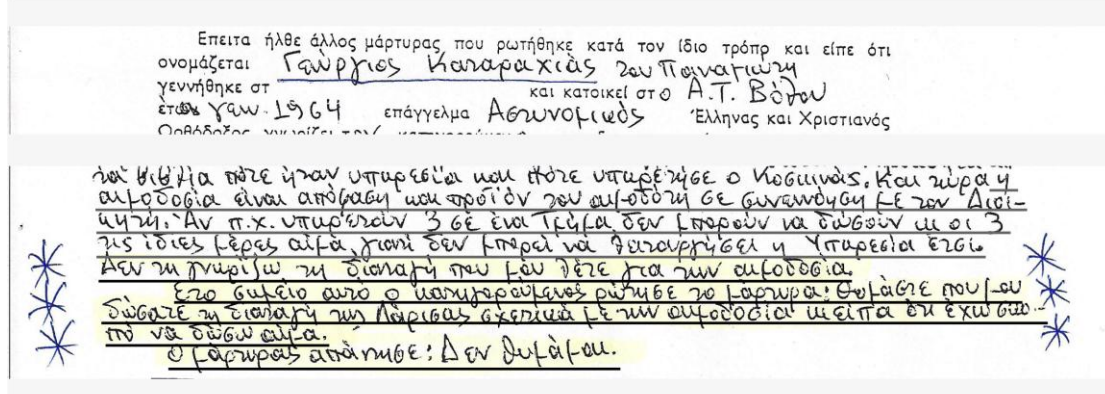 Επειτα ήλθε άλλος μάρτυρας που ρωτήθηκε κατά τον ίδιο τρόπρ και είπε ότι
ονομάζεται Γεώργιος Καταραχιάς του Παναγιώτη
γεννήθηκε στ και κατοικεί στο Α.Τ. Βόλου
έτος γεν. 1964 επάγγελμα Αστυνομικός Έλληνας και Χριστιανός
Ορθόδοξος γνωρίζει τον κατηγορούμενο
τα βιβλία πότε ήταν υπηρεσία και πότε υπηρέτησε ο Κοσκινάς. Και τώρα η
αιμοδοσία είναι απόφαση και προϊόν του αιμοδότη σε συνεννόηση με τον Διοι-
κητή. Αν π.χ. υπηρετούν 3 σε ένα Τμήμα δεν μπορούν να δώσουν κι οι 3
τις ίδιες μέρες αίμα, γιατί δεν μπορεί να λειτουργήσει η Υπηρεσία έτσι.
Δεν τη γνωρίζω τη διαταγή που μου λέτε για την αιμοδοσία.
Στο σημείο αυτό ο κατηγορούμενος ρώτησε το μάρτυρα: Θυμάστε που μου
δώσατε τη διαταγή της Λάρισας σχετικά με την αιμοδοσία κι είπα ότι έχω σκο-
πό να δώσω αίμα.
Ο μάρτυρας απάντησε: Δεν θυμάμαι.